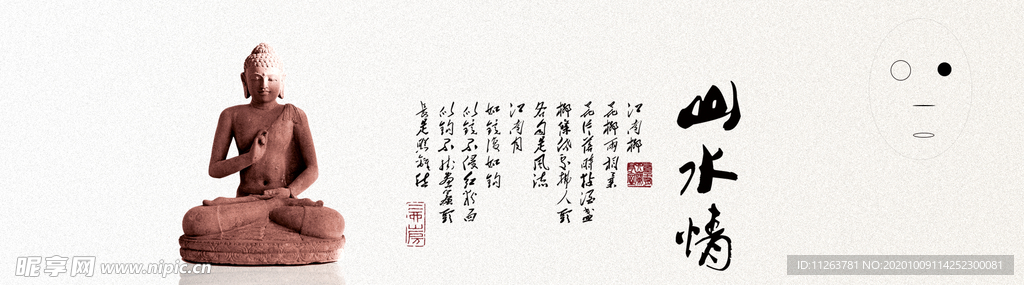 山水情
江南柳
花柳兩相柔
花片落時粘酒盞
柳條低處拂人頭
各自是風流
江南月
如鏡復如鉤
似鏡不侵紅粉面
似鉤不挂畫簾頭
長是照離愁
昵享网 www.nipic.cn
ID:11263781 NO:20201009114252300081